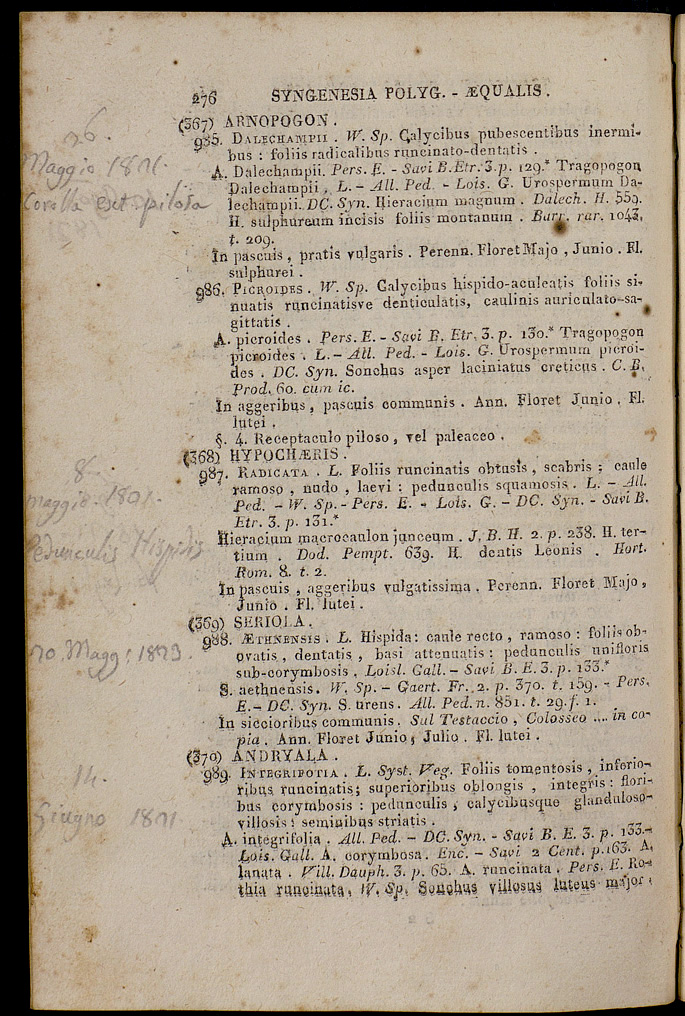 276 SYNGENESIA POLYG. - ÆQUALIS.
(367) ARNOPOGON.
985. DALECHAMPII. W. Sp. Calycibus pubescentibus inermi-
bus : foliis radicalibus runcinato-dentatis.
A. Dalechampii. Pers. E. - Savi B. Etr. 3. p. 129.* Tragopogon
Dalechampii. L. - All. Ped. - Lois. G. Urospermum Da-
lechampii. DC. Syn. Hieracium magnum. Dalech. H. 559.
H. sulphureum incisis foliis montanum. Barr. rar. 1043,
t. 209.
In pascuis, pratis vulgaris. Perenn. Floret Majo, Junio. Fl.
sulphurei.
986. PICROIDES. W. Sp. Calycibus hispido-aculeatis foliis si-
nuatis runcinatisve denticulatis, caulinis auriculato-sa-
gittatis.
A. picroides. Pers. E. - Savi B. Etr. 3. p. 130.* Tragopogon
picroides. L. - All. Ped. - Lois. G. Urospermum picroi-
des. DC. Syn. Sonchus asper laciniatus creticus. C. B.
Prod. 60. cum ic.
In aggeribus, pascuis communis. Ann. Floret Junio. Fl.
lutei.
§. 4. Receptaculo piloso, vel paleaceo.
(368) HYPOCHÆRIS.
987. RADICATA. L. Foliis runcinatis obtusis, scabris ; caule
ramoso, nudo, laevi : pedunculis squamosis. L. - All.
Ped. - W. Sp. - Pers. E. - Lois. G. - DC. Syn. - Savi B.
Etr. 3. p. 131.*
Hieracium macrocaulon junceum. J. B. H. 2. p. 238. H. ter-
tium. Dod. Pempt. 639. H. dentis Leonis. Hort.
Rom. 8. t. 2.
In pascuis, aggeribus vulgatissima. Perenn. Floret Majo,
Junio. Fl. lutei.
(369) SERIOLA.
988. ÆTHNENSIS. L. Hispida : caule recto, ramoso : foliis ob-
ovatis, dentatis, basi attenuatis : pedunculis unifloris
sub-corymbosis. Loisl. Gall. - Savi B. E. 3. p. 133.*
S. aethnensis. W. Sp. - Gaert. Fr. 2. p. 370. t. 159. - Pers.
E. - DC. Syn. S. urens. All. Ped. n. 851. t. 29. f. 1.
In siccioribus communis. Sul Testaccio, Colosseo .... in co-
pia. Ann. Floret Junio, Julio. Fl. lutei.
(370) ANDRYALA.
989. INTEGRIFOTIA. L. Syst. Veg. Foliis tomentosis, inferio-
ribus runcinatis; superioribus oblongis, integris : flori-
bus corymbosis : pedunculis, calycibusque glanduloso-
villosis : seminibus striatis.
A. integrifolia. All. Ped. - DC. Syn. - Savi B. E. 3. p. 133.-
Lois. Gall. A. corymbosa. Enc. - Savi 2 Cent. p. 163. A.
lanata. Vill. Dauph. 3. p. 65. A. runcinata. Pers. E. Ro-
thia runcinata. W. Sp. Sonchus villosus luteus major.
26.
Maggio 1801.
Corolla ext. pilosa
8
maggio. 1801.
Pedunculis Hispidis
20. Magg: 1803.
14.
Giugno 1801